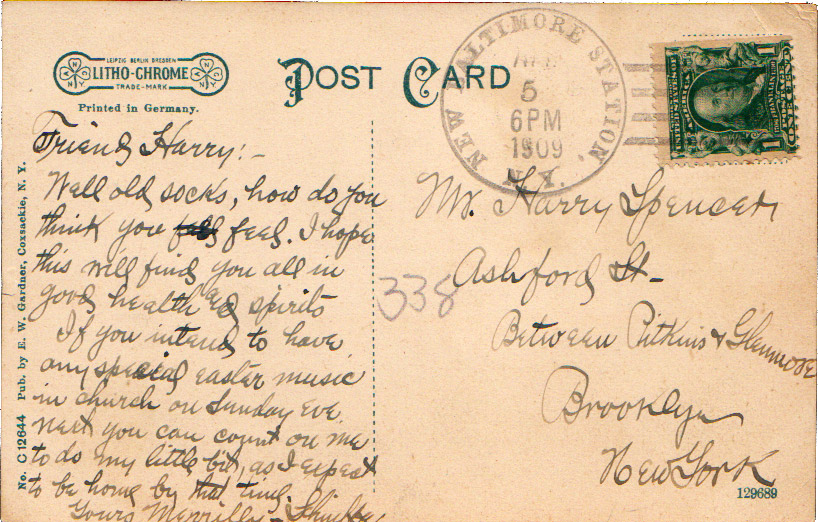 LEIPZIG BERLIN DRESDEN
LITHO-CHROME
TRADE-MARK
Printed in Germany.
POST CARD
NEW BALTIMORE STATION,
N.Y.
5
6PM
1909
No. C 12644 Pub. by E. W. Gardner, Coxsackie, N. Y.
Friend Harry:-
Well old socks, how do you
think you feel. I hope
this will find you all in
good health and spirits
If you intend to have
any special easter music
in church on Sunday eve
next you can count on me
to do my little bit, as I expect
to be home by that time.
Yours Merrilly-
Mr. Harry Spencer
Ashford St-
338
Between Pitkins & Glenmore
Brooklyn
New York
129689